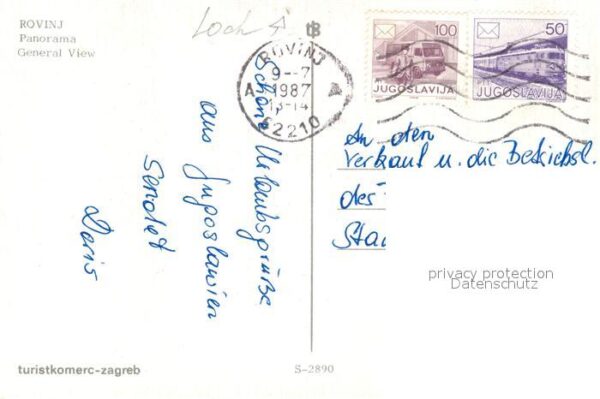 ROVINJ
Panorama
General View
Loch
ROVINJ
9--7
1987
13-14
52210
A A
100
JUGOSLAVIJA
50
JUGOSLAVIJA
Schöne Urlaubsgrüße
aus Jugoslawien
sendet
Doris
An den
Verkauf u. die Betriebsl.
des
Sta
privacy protection
Datenschutz
turistkomerc-zagreb
S-2890